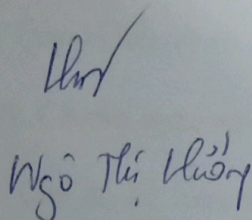 Ngô Thị Hướng